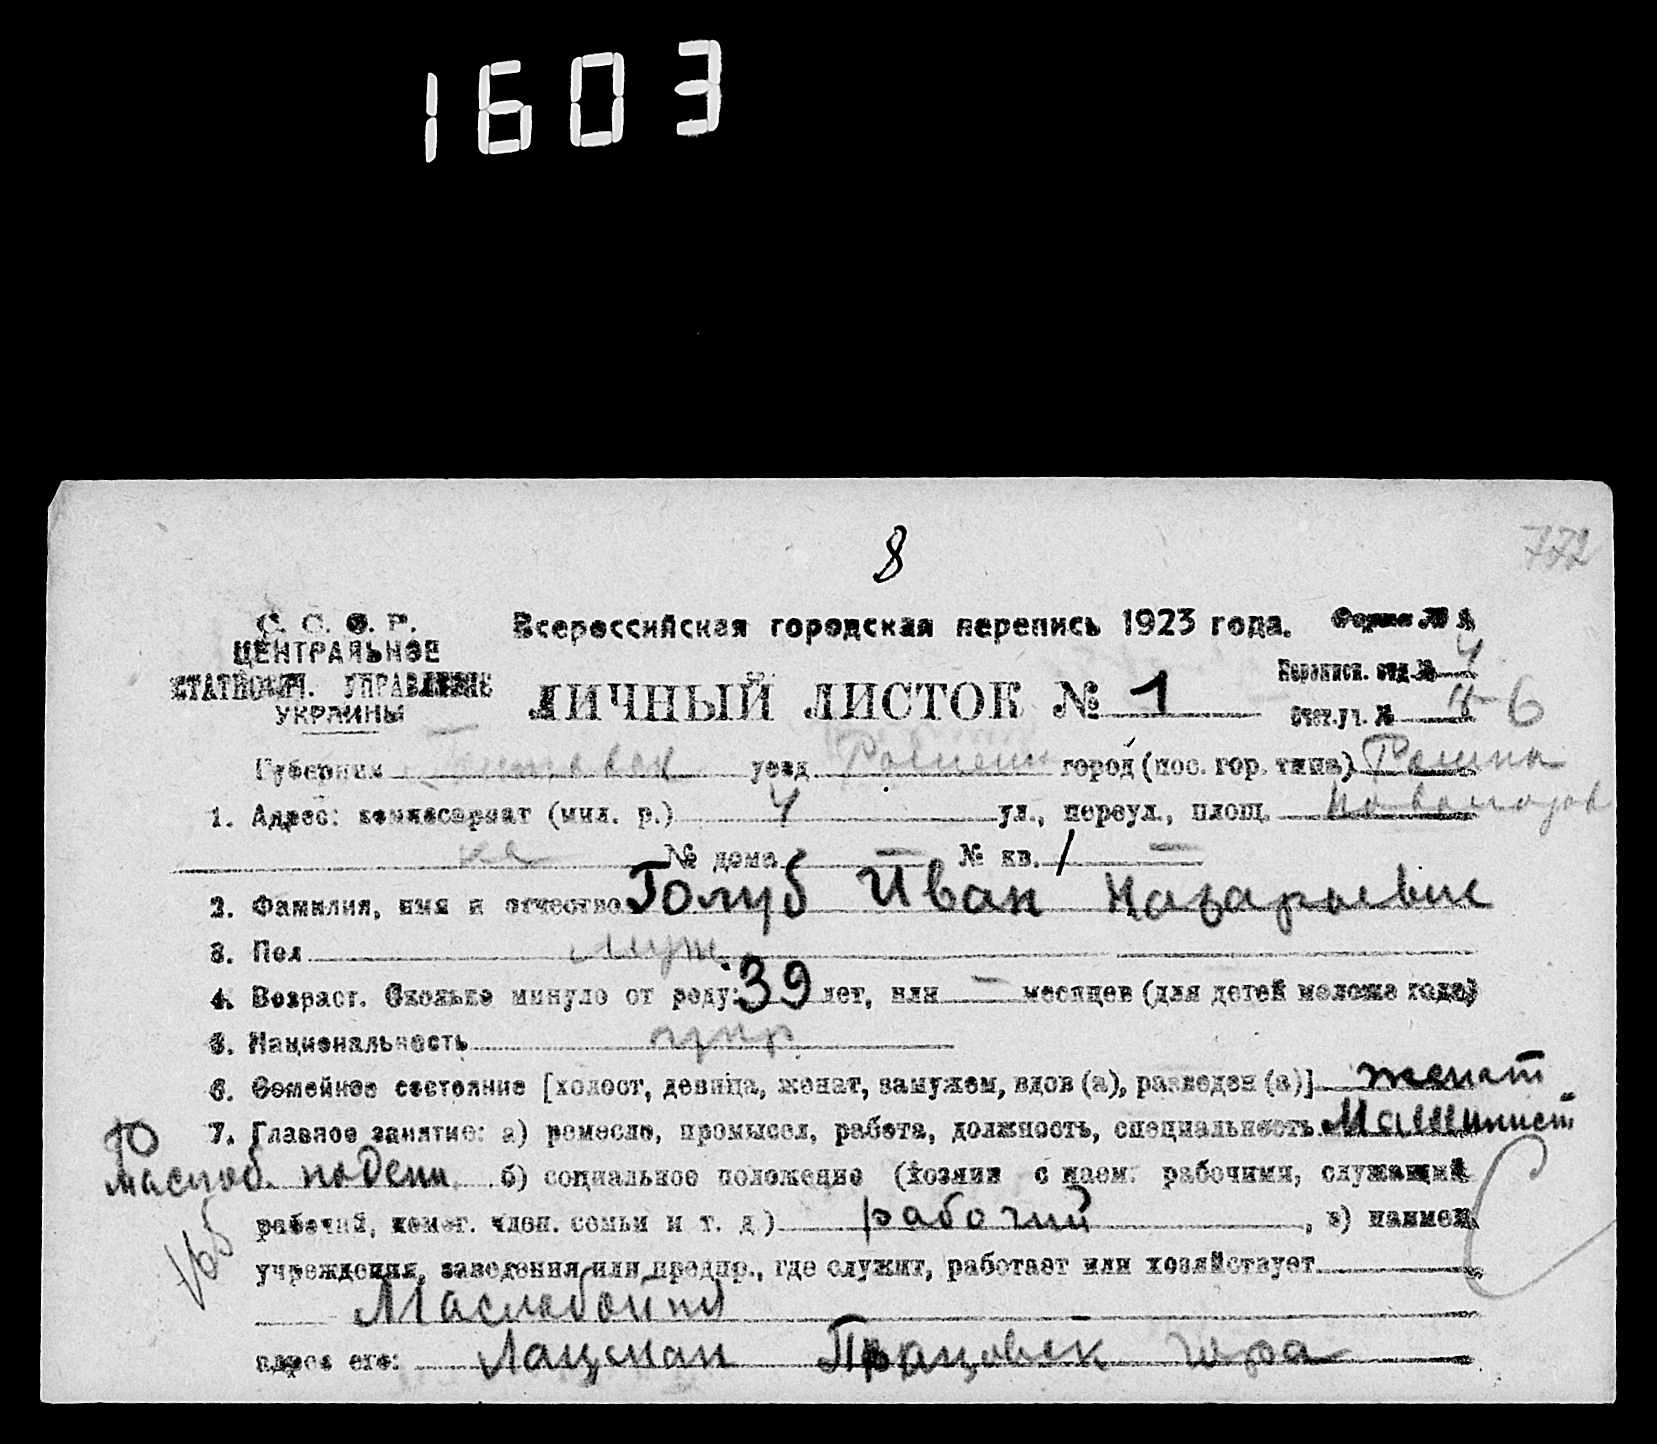 1603
8
772
С. С. Ф. Р.
ЦЕНТРАЛЬНОЕ
СТАТИСТИЧ. УПРАВЛЕНИЕ
УКРАИНЫ
Всероссийская городская перепись 1923 года.
Форма № 1
Переписн. отд. № 4
ЛИЧНЫЙ ЛИСТОК № 1
Счет. уч. № 6
Губерния уезд город (пос. гор. типа)
1. Адрес: комиссариат (мил. р.) 4 ул., переул., площ.
№ дома — № кв. —
2. Фамилия, имя и отчество Голуб Иван Назарьевич
3. Пол муж
4. Возраст. Сколько минуло от роду: 39 лет, или — месяцев (для детей моложе года)
5. Национальность укр
6. Семейное состояние [холост, девица, женат, замужем, вдов (а), разведен (а)] женат
7. Главное занятие: а) ремесло, промысел, работа, должность, специальность Машинист
б) социальное положение (хозяин с наем. рабочими, служащий
рабочий, помог. член. семьи и т. д.) рабочий, в) наимен.
учреждения, заведения или предпр., где служит, работает или хозяйствует
адрес его: гора